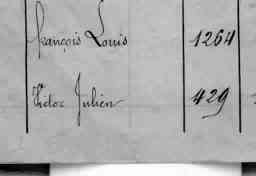 François Louis 1264
Victor Julien 429